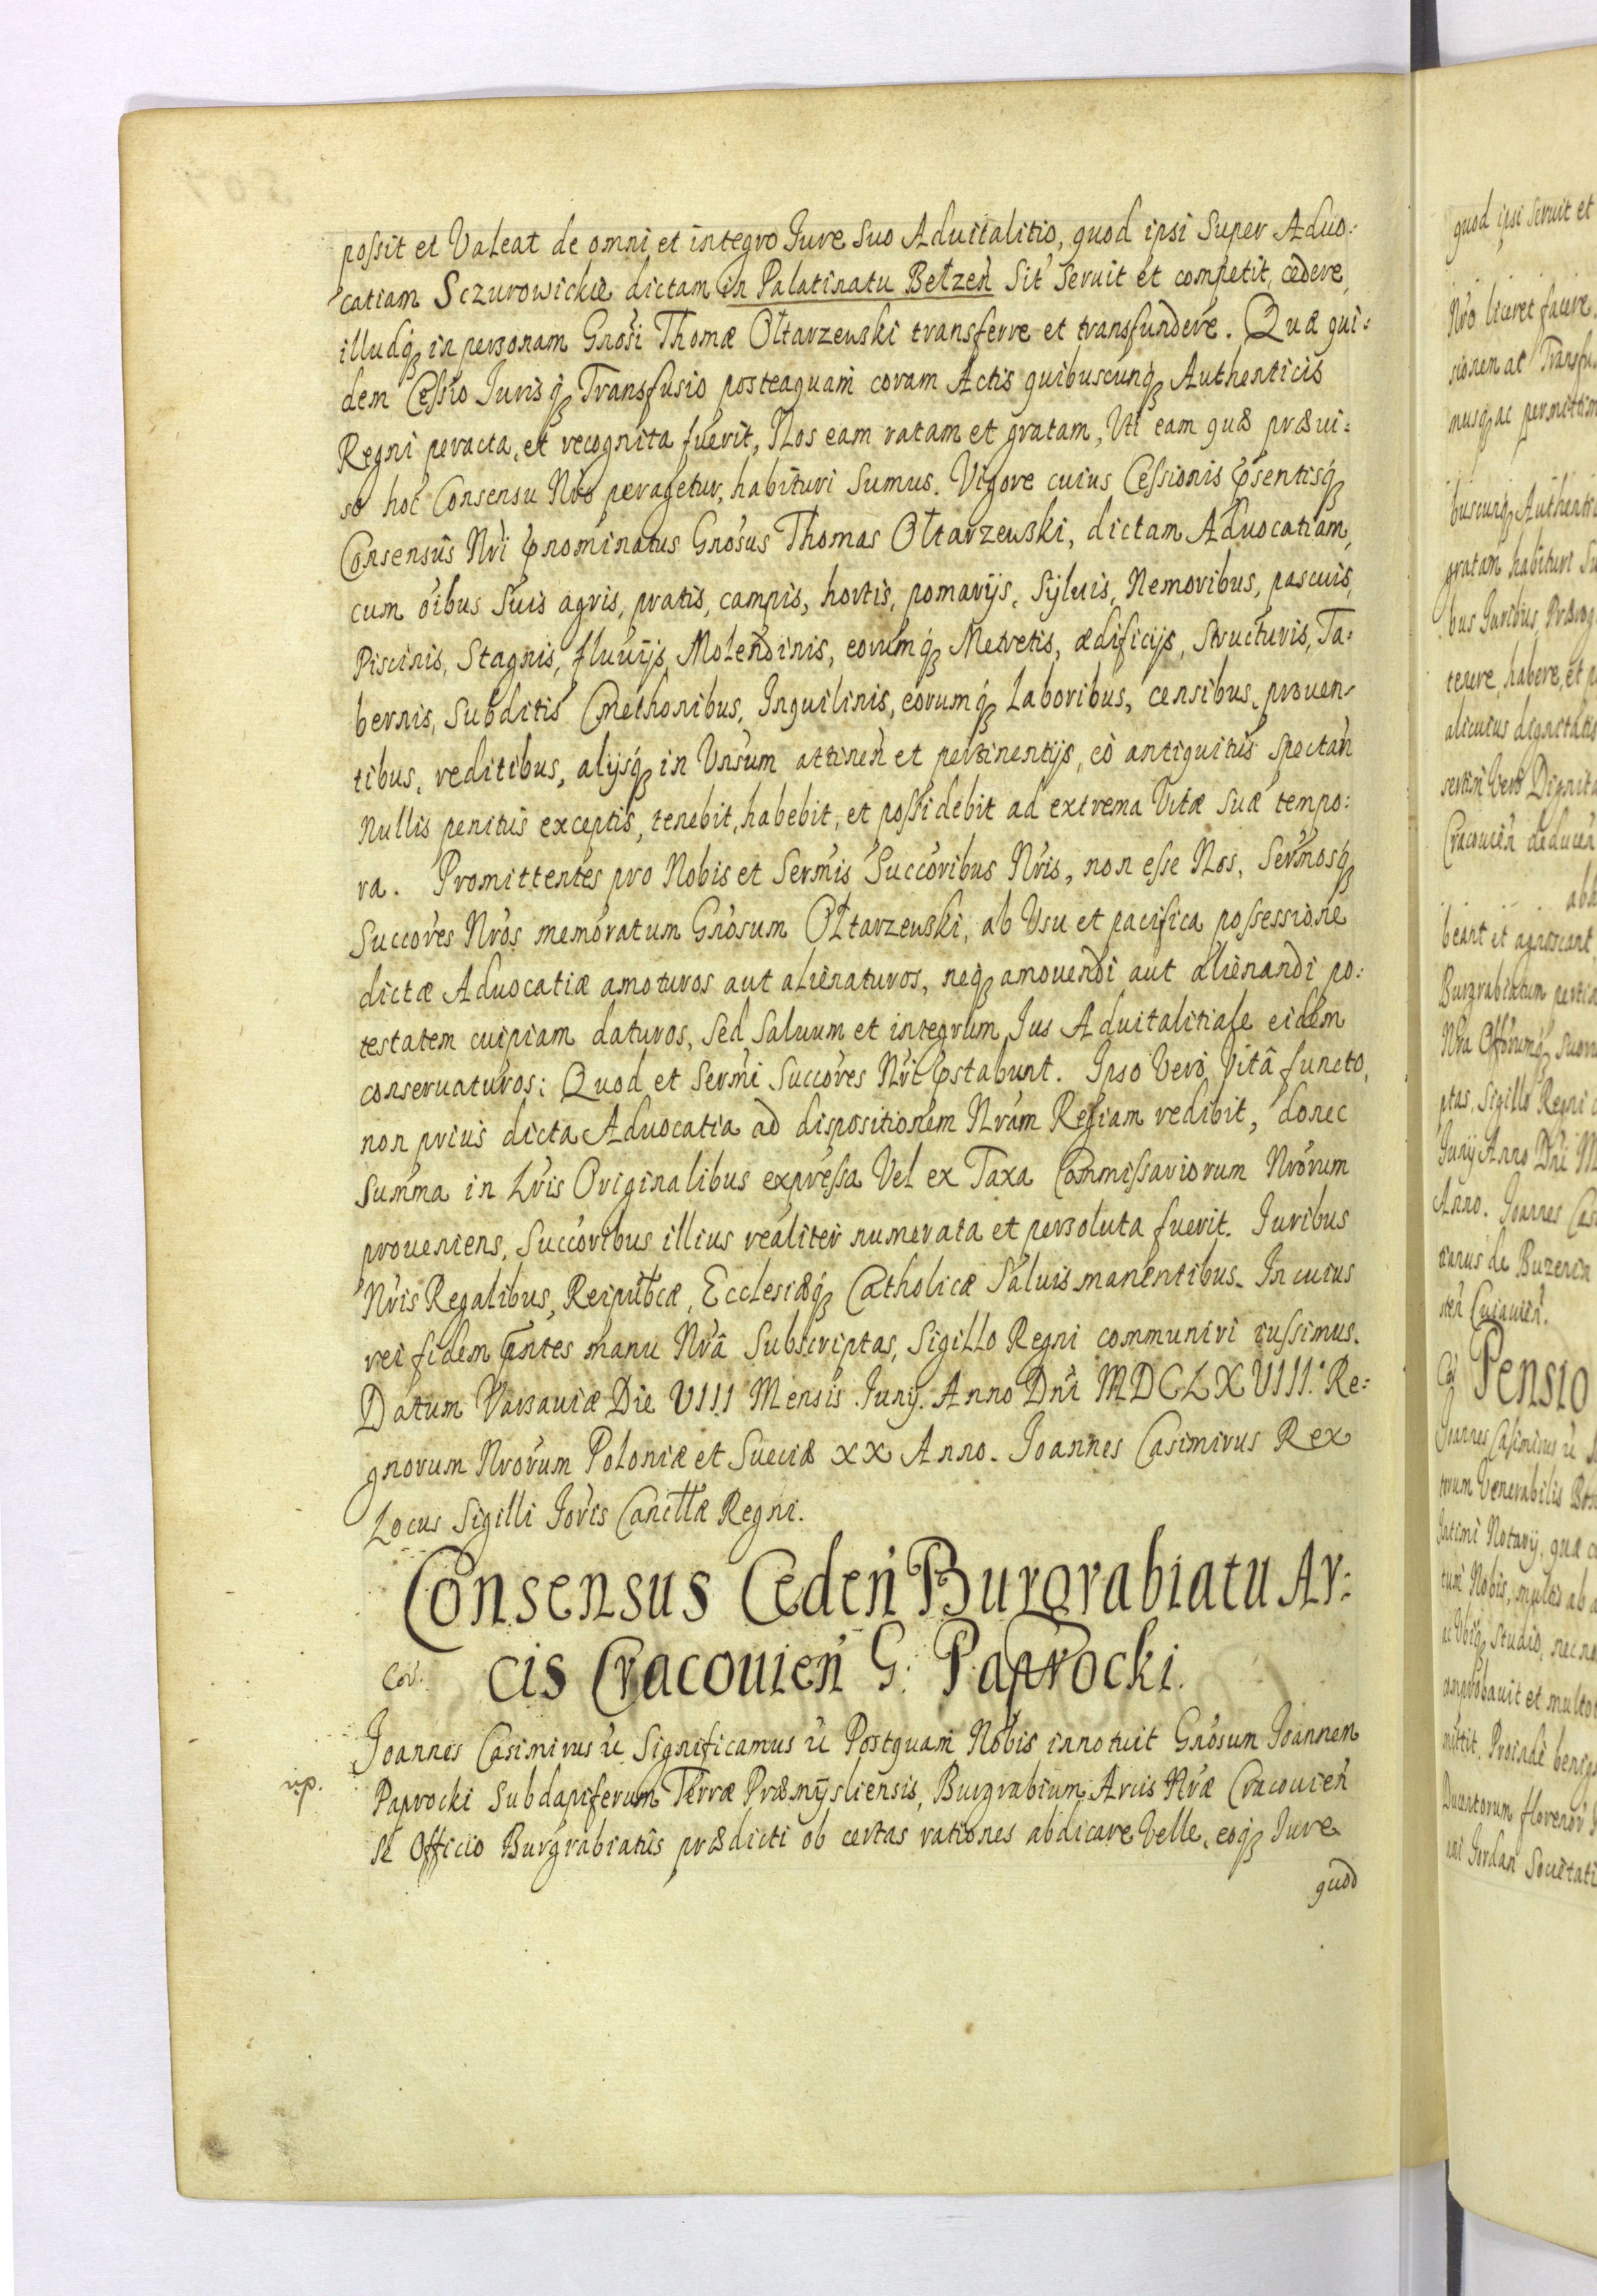 possit et Valeat de omni et integro Iure Suo Aduitalitio, quod ipsi Super Aduo:
catiam Sczurowickie dictam in Palatinatu Bełzeń Sit Seruit et competit, cedere,
illudq₃ in personam Gnosi Thomæ Ołtarzewski transferre et transfundere. Quæ qui:
dem Cessio Jurisq₃ Transfusio posteaquam coram Actis quibuscunq₃ Authenticis
Regni peracta, et recognita fuerit, Nos eam ratam et gratam, Vti eam quæ præui:
so hoc Consensu Nro peragetur, habituri Sumus. Vigore cuius Cessionis pſentisq₃
Consensûs Nri pnominatus Gnosus Thomas Ołtarzewski, dictam Aduocatiam,
cum oibus Suis agris, pratis, campis, hortis, pomarijs, Syluis, Nemoribus, pascuis,
Piscinis, Stagnis, fluuijs, Molendinis, eorumq₃ Metretis, ædificijs, structuris, Ta:
bernis, Subditis Cmethonibus, Inquilinis, eorumq₃ Laboribus, censibus, prouen:
tibus, reditibus, alijsq₃ in Vnsum attineñ et pertinentijs, eò antiquitus spectañ
nullis penitus exceptis, tenebit, habebit, et possidebit ad extrema Vitæ suæ tempo:
ra. Promittentes pro Nobis et Sermis Succoribus Nris, non esse Nos, Sermosq₃
Succores Nros memoratum Gnosum Ołtarzewski, ab Vsu et pacifica possessione
dictæ Aduocatiæ amoturos aut alienaturos, neq₃ amouendi aut alienandi po:
testatem cuipiam daturos, Sed Saluum et integrum Jus Aduitalitiale eidem
conseruaturos: Quod et Sermi Succores Nri pstabunt. Ipso Vero Vitâ functo,
non prius dicta Aduocatia ad dispositionem Nram Regiam redibit, donec
Summa in Lris Originalibus expressa Vel ex Taxa Commissariorum Nrorum
proueniens, Succoribus illius realiter numerata et persoluta fuerit. Iuribus
Nris Regalibus, Reipublcæ, Ecclesiæq₃ Catholicæ Saluis manentibus. In cuius
rei fidem pntes manu Nrâ Subscriptas, Sigillo Regni communiri iussimus.
Datum Varsauiæ Die VIII Mensis Iunij. Anno Dni MDCLXVIII. Re:
gnorum Nrorum Poloniæ et Sueciæ XX Anno. Joannes Casimirus Rex
Locus Sigilli Joris Cancllæ Regni.
Consensus Cedeń Burgrabiatu Ar:
Cor. cis Cracouień G. Paprocki.
Joannes Casimirus &c Significamus &c Postquam Nobis innotuit Gnosum Joannem
Paprocki Subdapiferum Terræ Præmysliensis, Burgrabium Arcis Nræ Cracouień
se Officio Burgrabiatûs prædicti ob certas rationes abdicare Velle, eoq₃ Iure
quod
quod ipsi Seruit et
Nro liceret facere
sionem ac Transfu
musq₃ ac permittim
buscunq₃ Authenti
gratam habituri Su
bus Iuribus, Prærog
tenere, habere, et p
alicuius dignitatis
Vero Dignita
Cracouień deducen
abh
beant et agnoscant
Burgrabiatum pertin
ptas, Sigillo Regni c
Junij Anno Dni M
Anno. Joannes Cas
de Buzenin
Cuiauień.
Cor Pensio
Joannes Casimirus &c
Venerabilis
Intimi Notarij, quæ
Nobis, multis ab a
Studio, nec no
approbauit et multo
mittit. Proinde benig
Ducentorum florenor
Jordan Societati